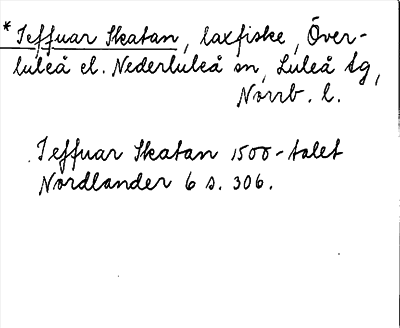 * Ieffuar Skatan, laxfiske, Över-
luleå el. Nederluleå sn, Luleå tg,
Norrb. l.
Ieffuar Skatan 1500-talet
Nordlander 6 s. 306.